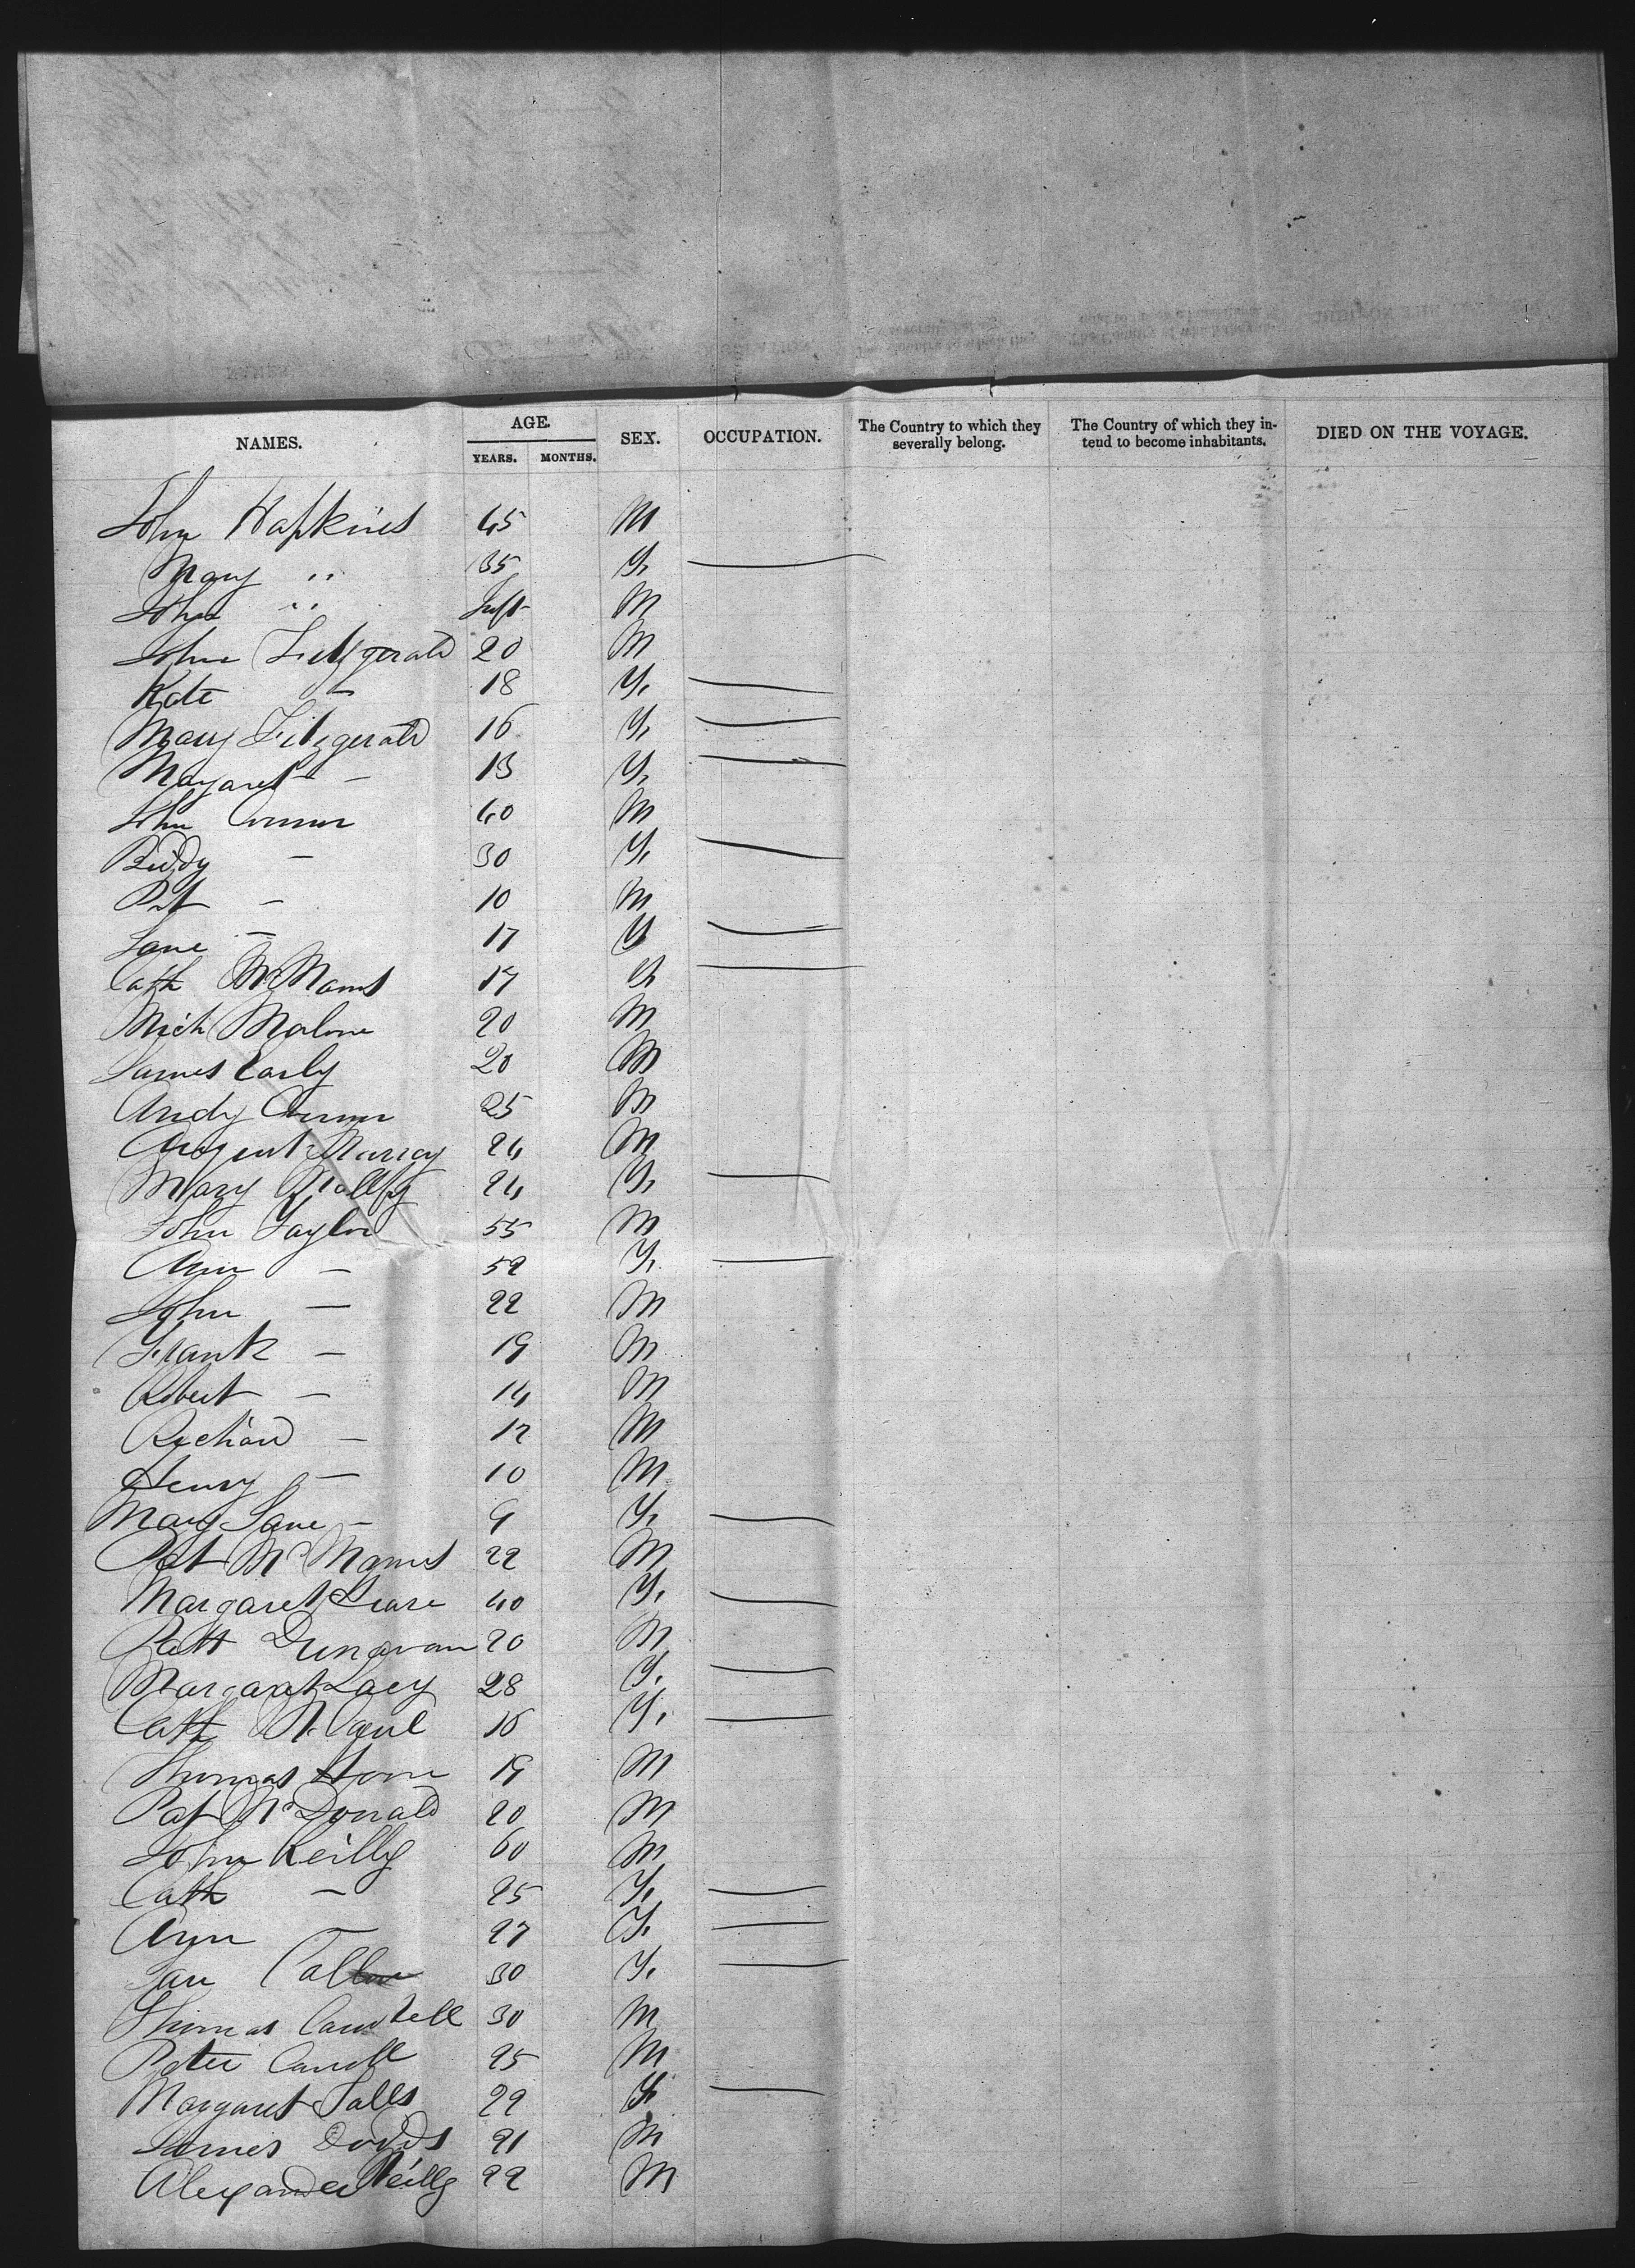 NAMES. AGE. YEARS. MONTHS. SEX. OCCUPATION. The Country to which they severally belong. The Country of which they intend to become inhabitants. DIED ON THE VOYAGE.
John Hopkins 45 M
Mary " 35 F. —
John " Inft M
John Fitzgerald 20 M
Kate - 18 F. —
Mary Fitzgerald 16 F. —
Margaret - 13 F. —
John Connor 40 M
Biddy - 30 F. —
Pat - 10 M
Jane - 17 F —
Cath McManus 17 F —
Mich Malone 20 M
James Early 20 M
Andy Connor 25 M
Murray 24 M
Mary 24 F. —
John Taylor 55 M
Ann - 52 F. —
John - 22 M
Frank - 19 M
Robert - 14 M
Richard - 12 M
Henry - 10 M
Mary Jane - 9 F. —
Pat McManus 22 M
Margaret 40 F. —
Patt Dunavan 20 M
Margaret Lacy 28 F. —
Cath 16 F. —
Thomas 19 M
Pat McDonald 20 M
John Reilly 60 M
Cath - 25 F. —
Ann - 27 F. —
Jane 30 F. —
Thomas 30 M
Peter Carroll 25 M
Margaret Falls 22 F. —
James Dodds 21 M
Alexander Reilly 22 M